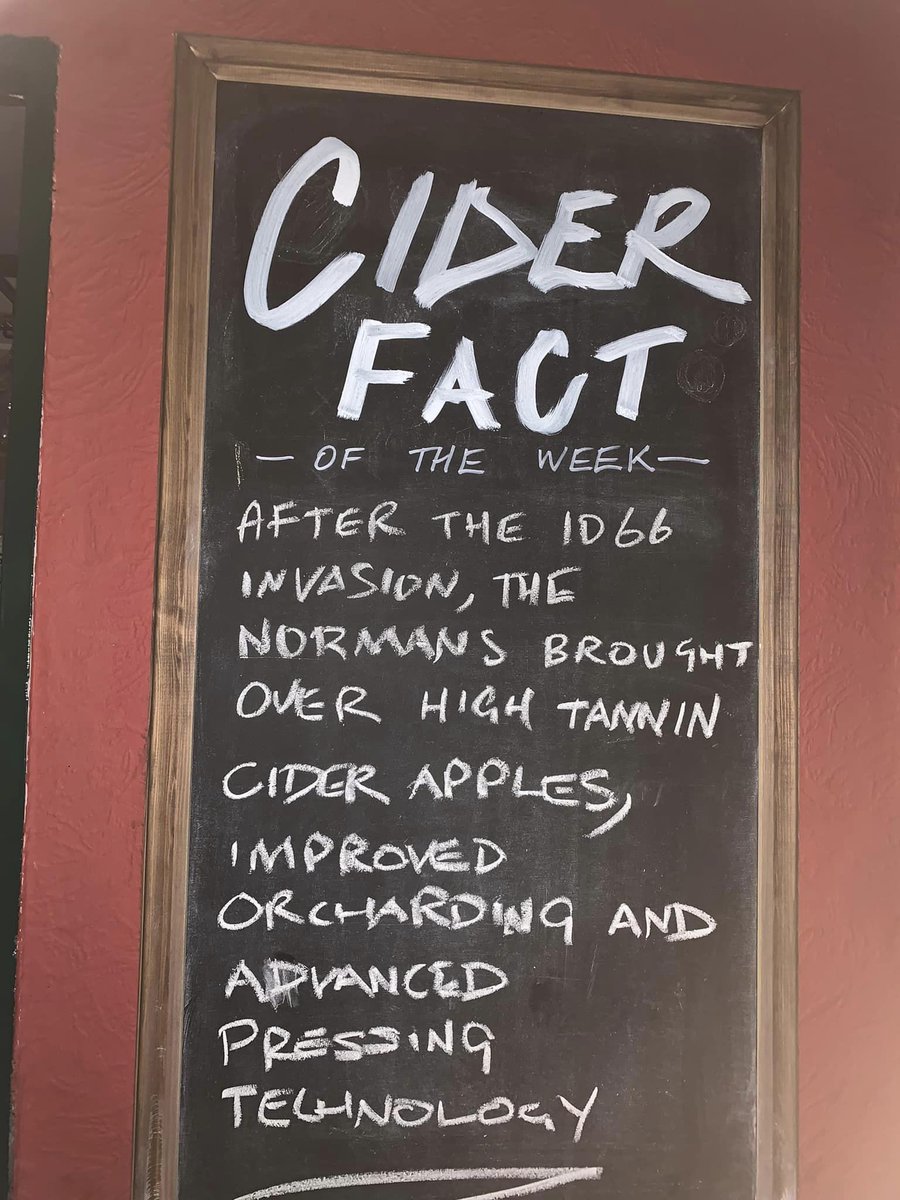 CIDER
FACT
— OF THE WEEK —
AFTER THE 1066
INVASION, THE
NORMANS BROUGHT
OVER HIGH TANNIN
CIDER APPLES,
IMPROVED
ORCHARDING AND
ADVANCED
PRESSING
TECHNOLOGY